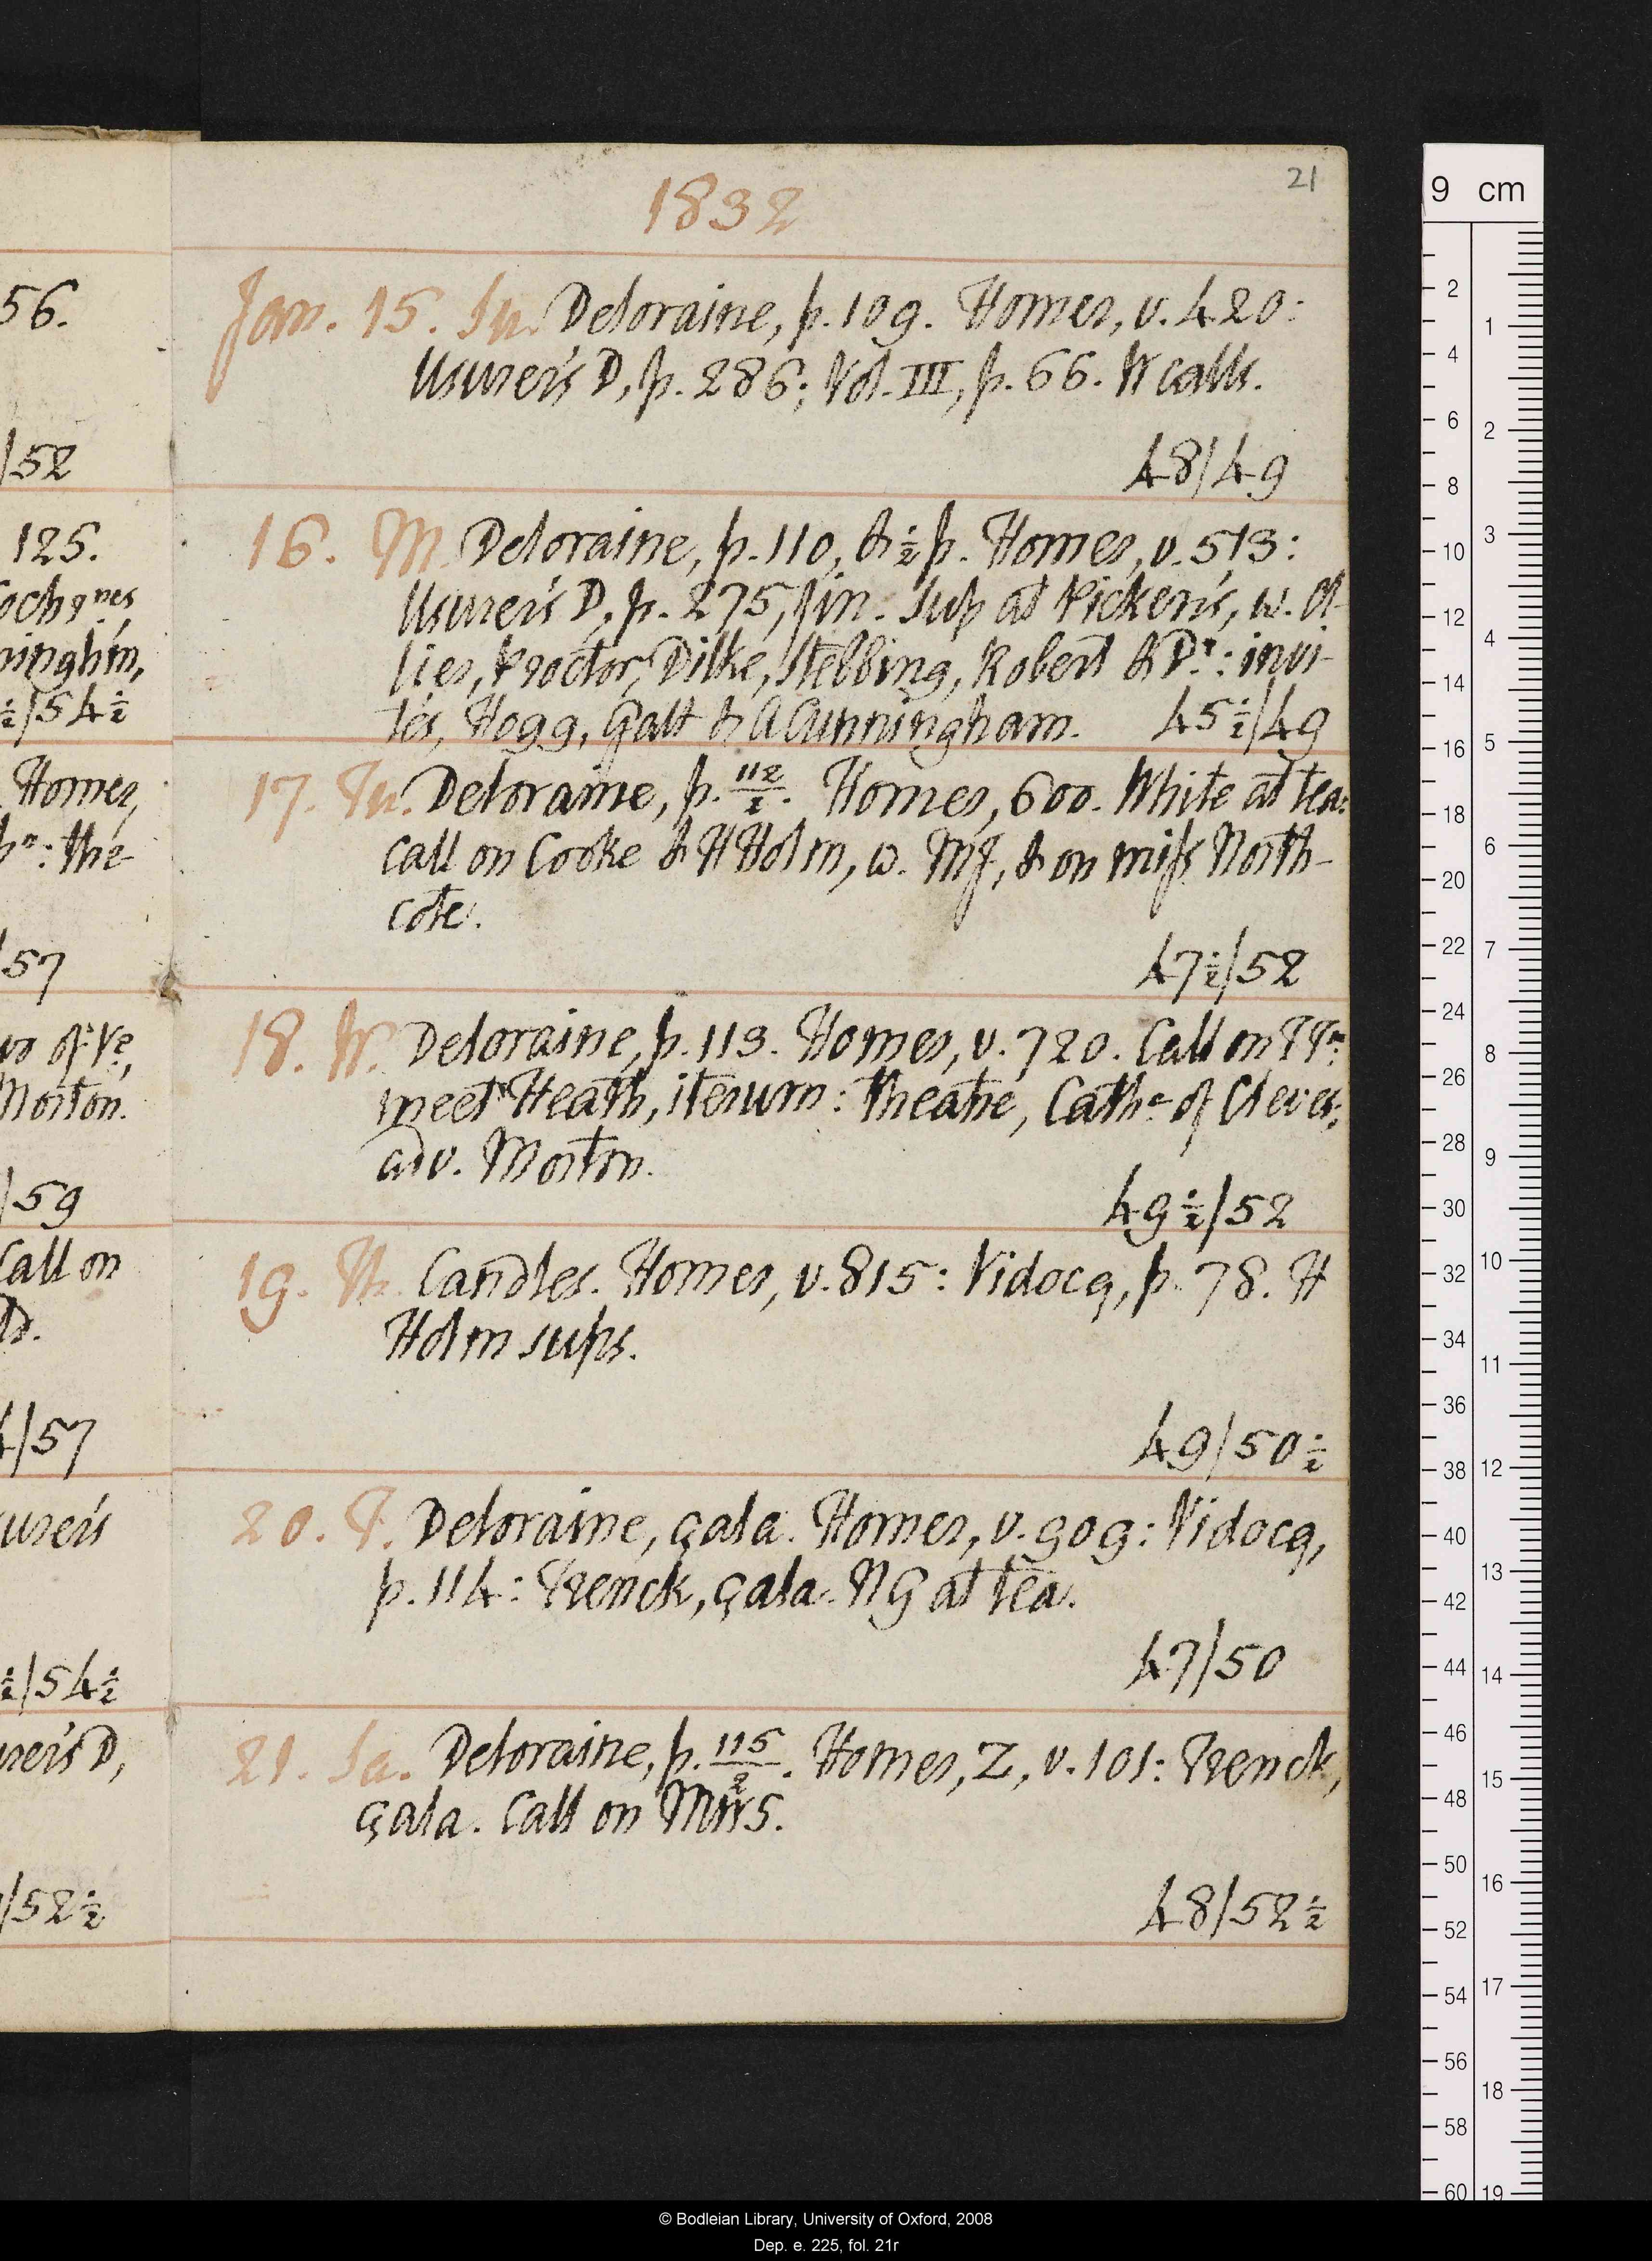 21
1832
Jan. 15. Su. Deloraine, p. 109. Homer, v. 420:
Usurer's D, p. 286; Vol. III, p. 66. W calls.
48/49
16. M. Deloraine, p. 110, & ½ p. Homer, v. 513:
Usurer's D, p. 275, fin. Sup at Picken's, w. Ol-
lier, Proctor, Dilke, Stebbing, Robert & Dr: invi-
tés, Hogg, Galt & A Cunningham. 45½/49
17. Tu. Deloraine, p. 112/2. Homer, 600. White at tea:
call on Cooke & H Holm, w. MJ, & on miss North-
cote.
47½/52
18. W. Deloraine, p. 113. Homer, v. 720. Call on
meet Heath, iterum: theatre, Cathe of Cleves:
adv. Morton.
49½/52
19. Th. Candles. Homer, v. 815: Vidocq, p. 78. H
Holm sups.
49/50½
20. F. Deloraine, çala. Homer, v. 909: Vidocq,
p. 114: Trenck, çala. NG at tea.
47/50
21. Sa. Deloraine, p. 115/2. Homer, Z, v. 101: Trenck,
çala. Call on MWS.
48/52½
56.
/52
125.
/54½
Homer,
: the
/57
Morton.
/59
Call on
/57
urer's
½/54½
urer's D,
/52½
9 cm
2 4 6 8 10 12 14 16 18 20 22 24 26 28 30 32 34 36 38 40 42 44 46 48 50 52 54 56 58 60
1 2 3 4 5 6 7 8 9 10 11 12 13 14 15 16 17 18 19
© Bodleian Library, University of Oxford, 2008
Dep. e. 225, fol. 21r